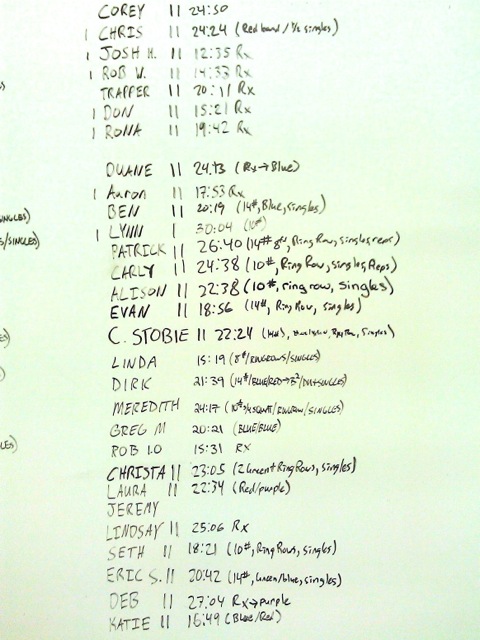 COREY 11 24:50
1 CHRIS 11 24:24 (Red band / 1/2 singles)
1 JOSH M. 11 12:35 Rx
1 ROB W. 11 14:33 Rx
TRAPPER 11 20:11 Rx
1 DON 11 15:21 Rx
1 RONA 11 19:42 Rx
DUANE 11 24:13 (Rx→Blue)
1 Aaron 11 17:53 Rx
BEN 11 20:19 (14#, Blue, singles)
1 LYNN 1 30:04 (10#)
PATRICK 11 26:40 (14# Ring Row, singles
CARLY 11 24:38 (10#, Ring Row, singles, Reps)
ALISON 11 22:38 (10#, ring row, singles)
EVAN 11 18:56 (14#, Ring Row, singles)
C. STOBIE 11 22:24 Singles)
LINDA 15:19 (8#/RINGROWS/SINGLES)
DIRK 21:39 (14#/BLUE/RED→
MEREDITH 24:17 (10#/ /RINGROW/SINGLES)
GREG M 20:21 (BLUE/BLUE)
ROB 1.0 15:31 RX
CHRISTA 11 23:05 Ring Rows, singles)
LAURA 11 22:34 (Red/purple)
JEREMY
LINDSAY 11 25:06 Rx
SETH 11 18:21 (10#, Ring Rows, singles)
ERIC S. 11 20:42 (14#, Green/blue, singles)
DEB 11 27:04 Rx→purple
KATIE 11 16:49 (Blue/Red)
SINGLES)
S/SINGLES)
LES)